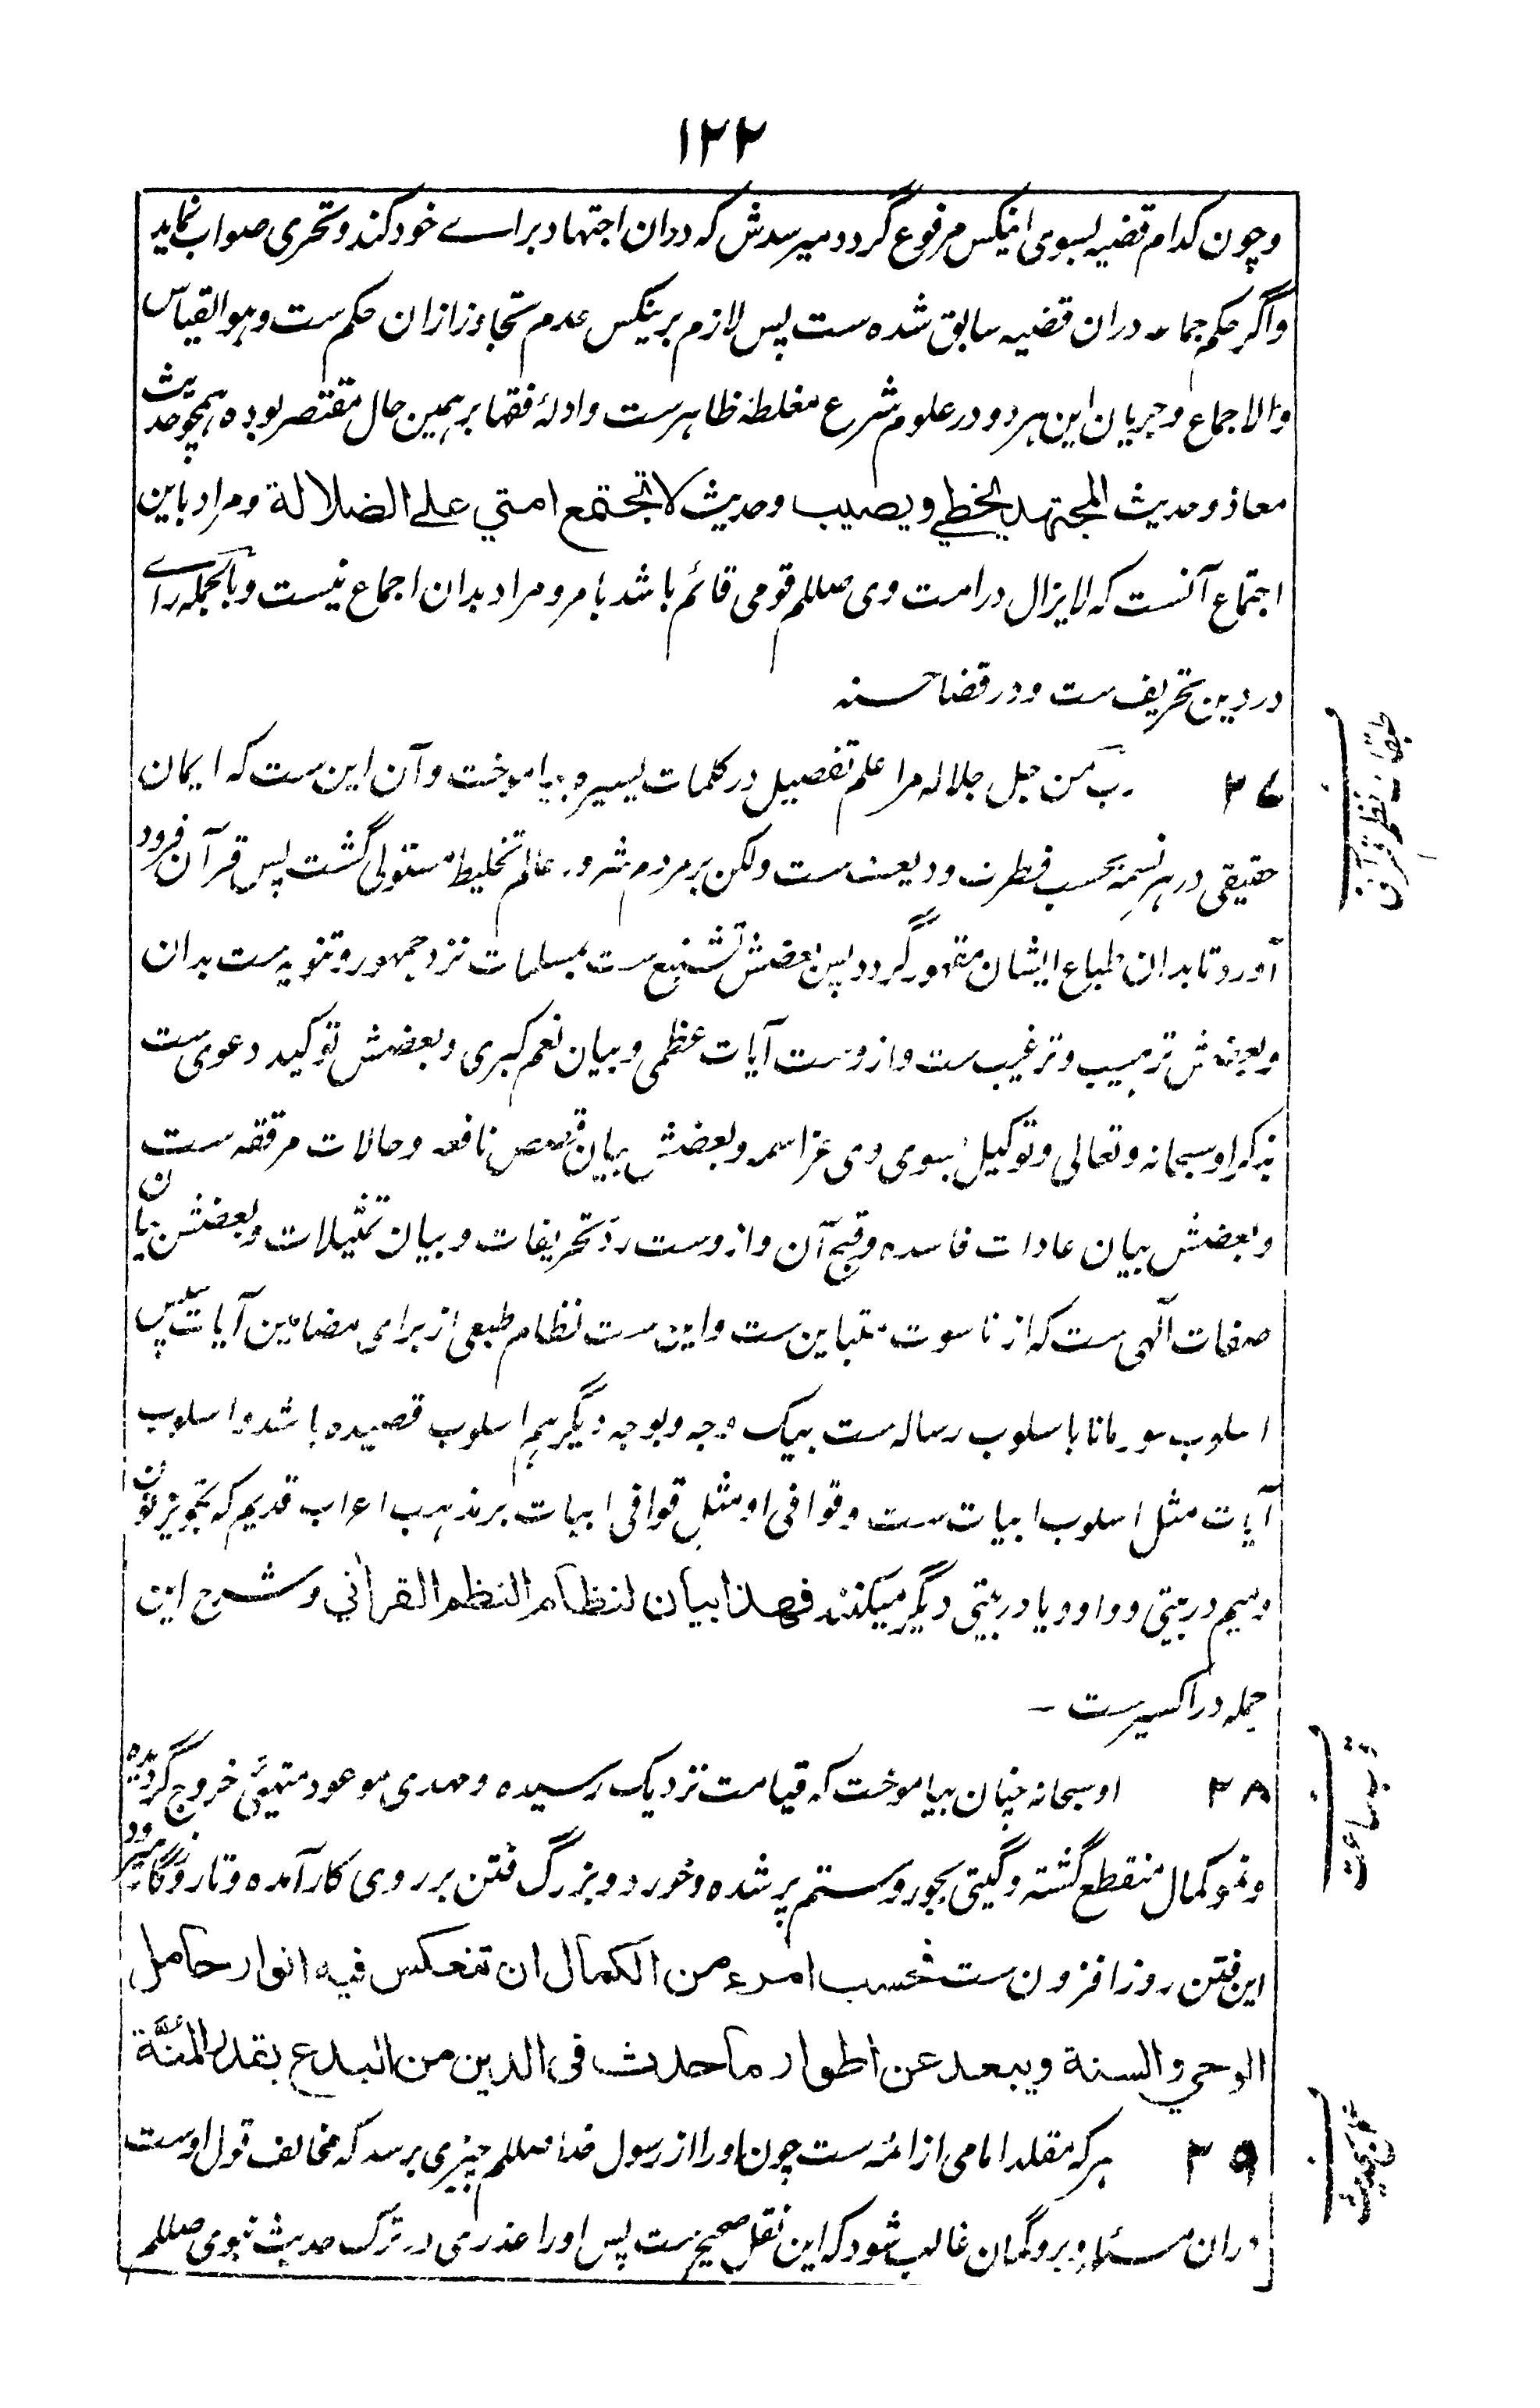 ۱۲۲
وچون کدام قضیه بسوی اینکس مرفوع گردد میرسدش که دران اجتهاد براے خود کند و تحری صواب نماید
واگر حکم جماعه دران قضیه سابق شده ست پس لازم برینکس عدم تجاوز ازان حکم ست و هو القیاس
والاجماع و جریان این هر دو در علوم شرع مغلطه ظاهر ست و ادلۀ فقها بر همین حال مقتصر بوده همچو حدیث
معاذ و حدیث المجتهد یخطی و یصیب و حدیث لا تجتمع امتي علی الضلالة و مراد باین
اجتماع آنست که لایزال در امت وی صللم قومی قائم باشد بامر و مراد بدان اجماع نیست و بالجمله راے
در دین تحریف ست و در قضا حسنه
۳۷ رب من جل جلاله مرا علم تفصیل در کلمات یسیره بیاموخت و آن این ست که ایمان
حقیقی در هر نسمه بحسب فطرت ودیعت ست ولکن بر مردم شرور عالم تخلیط مستولی گشت پس قرآن فرود
آورد تا بدان طباع ایشان مقهور گردد پس بعضش تشنیع ست بمسلمات نزد جمهور و تنویه ست بدان
و بعضش ترهیب و ترغیب ست و ازوست آیات عظمی و بیان نعم کبری و بعضش توکید دعوی ست
بذکر او سبحانه و تعالی و توکیل بسوی وی عز اسمه و بعضش بیان قصص نافعه و حالات مرققه ست
و بعضش بیان عادات فاسده و قبح آن و ازوست رد تحریفات و بیان تمثیلات و بعضش بیان
صفات آلهی ست که از ناسوت متباین ست و این ست نظام طبعی از برای مضامین آیات پس
اسلوب سور مانا باسلوب رساله ست بیک وجه و بوجه دیگر هم اسلوب قصیده باشد و اسلوب
آیات مثل اسلوب ابیات ست و قوافی او مثل قوافی ابیات بر مذهب اعراب قدیم که تجویز نون
و میم در بیتی و واو و یا در بیتی دیگر میکنند فهذا بیان لنظام النظم القرآني و شرح این
جمله در اکسیر ست ۔
طبقات نظم قرآن
۳۸ او سبحانه چنان بیاموخت که قیامت نزدیک رسیده و مهدی موعود متهیئ خروج گردیده
و نمو کمال منقطع گشته و گیتی بجور و ستم پر شده و خورد و بزرگ فتن بر روی کار آمده و تا روزگار میرود
این فتن روز افزون ست فحسب امرء من الکمال ان تنعکس فیه انوار حامل
الوحي والسنة ویبعد عن اطوار ما حدث فی الدین من البدع بقدر المنة
قرب ساعت
۳۹ هر که مقلد امامی از ائمه ست چون او را از رسول خدا صللم چیزی برسد که مخالف قول اوست
دران مسئله و برو گمان غالب شود که این نقل صحیح ست پس او را عذری در ترک حدیث نبوی صللم